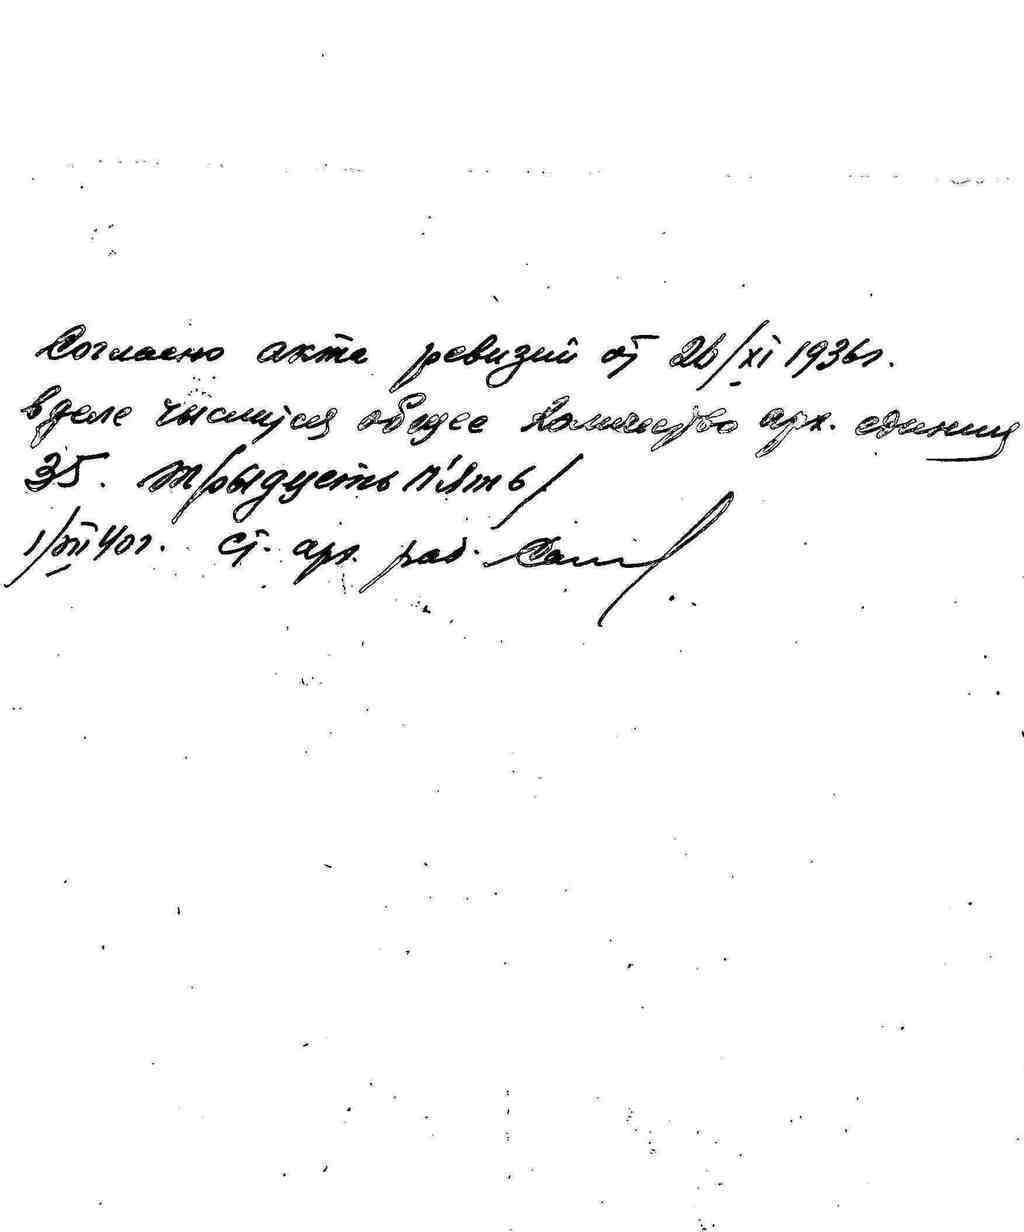 Согласно акта ревизий от 26/XI 1936г.
в деле числится общее количество арх. единиц
35. трыдцеть п'ять/
1/XII 40г. Ст. арх. раб.